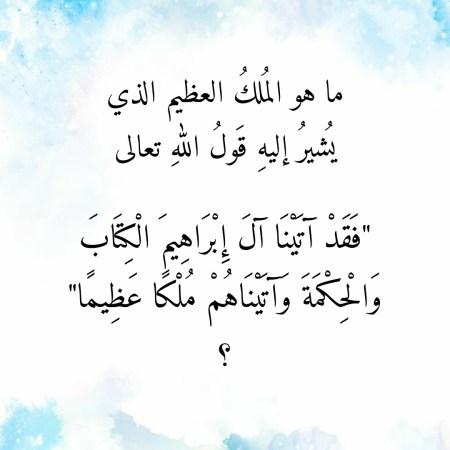 ما هو المُلكُ العظيم الذي
يُشيرُ إليهِ قَولُ اللهِ تعالى
"فَقَدْ آتَيْنَا آلَ إِبْرَاهِيمَ الْكِتَابَ
وَالْحِكْمَةَ وَآتَيْنَاهُمْ مُلْكًا عَظِيمًا"
؟